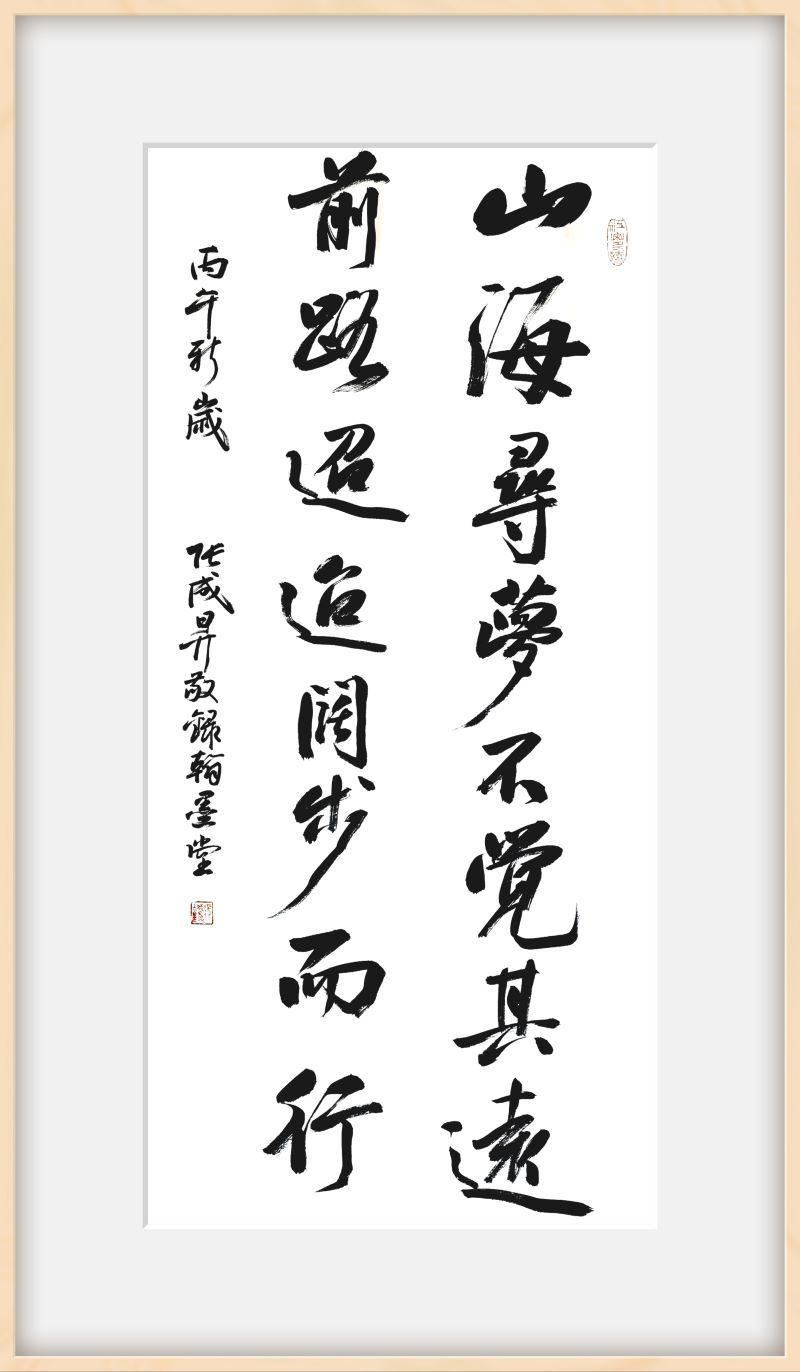 山海尋夢不觉其遠
前路迢迢阔步而行
丙午新歲
张成昇敬録翰墨堂